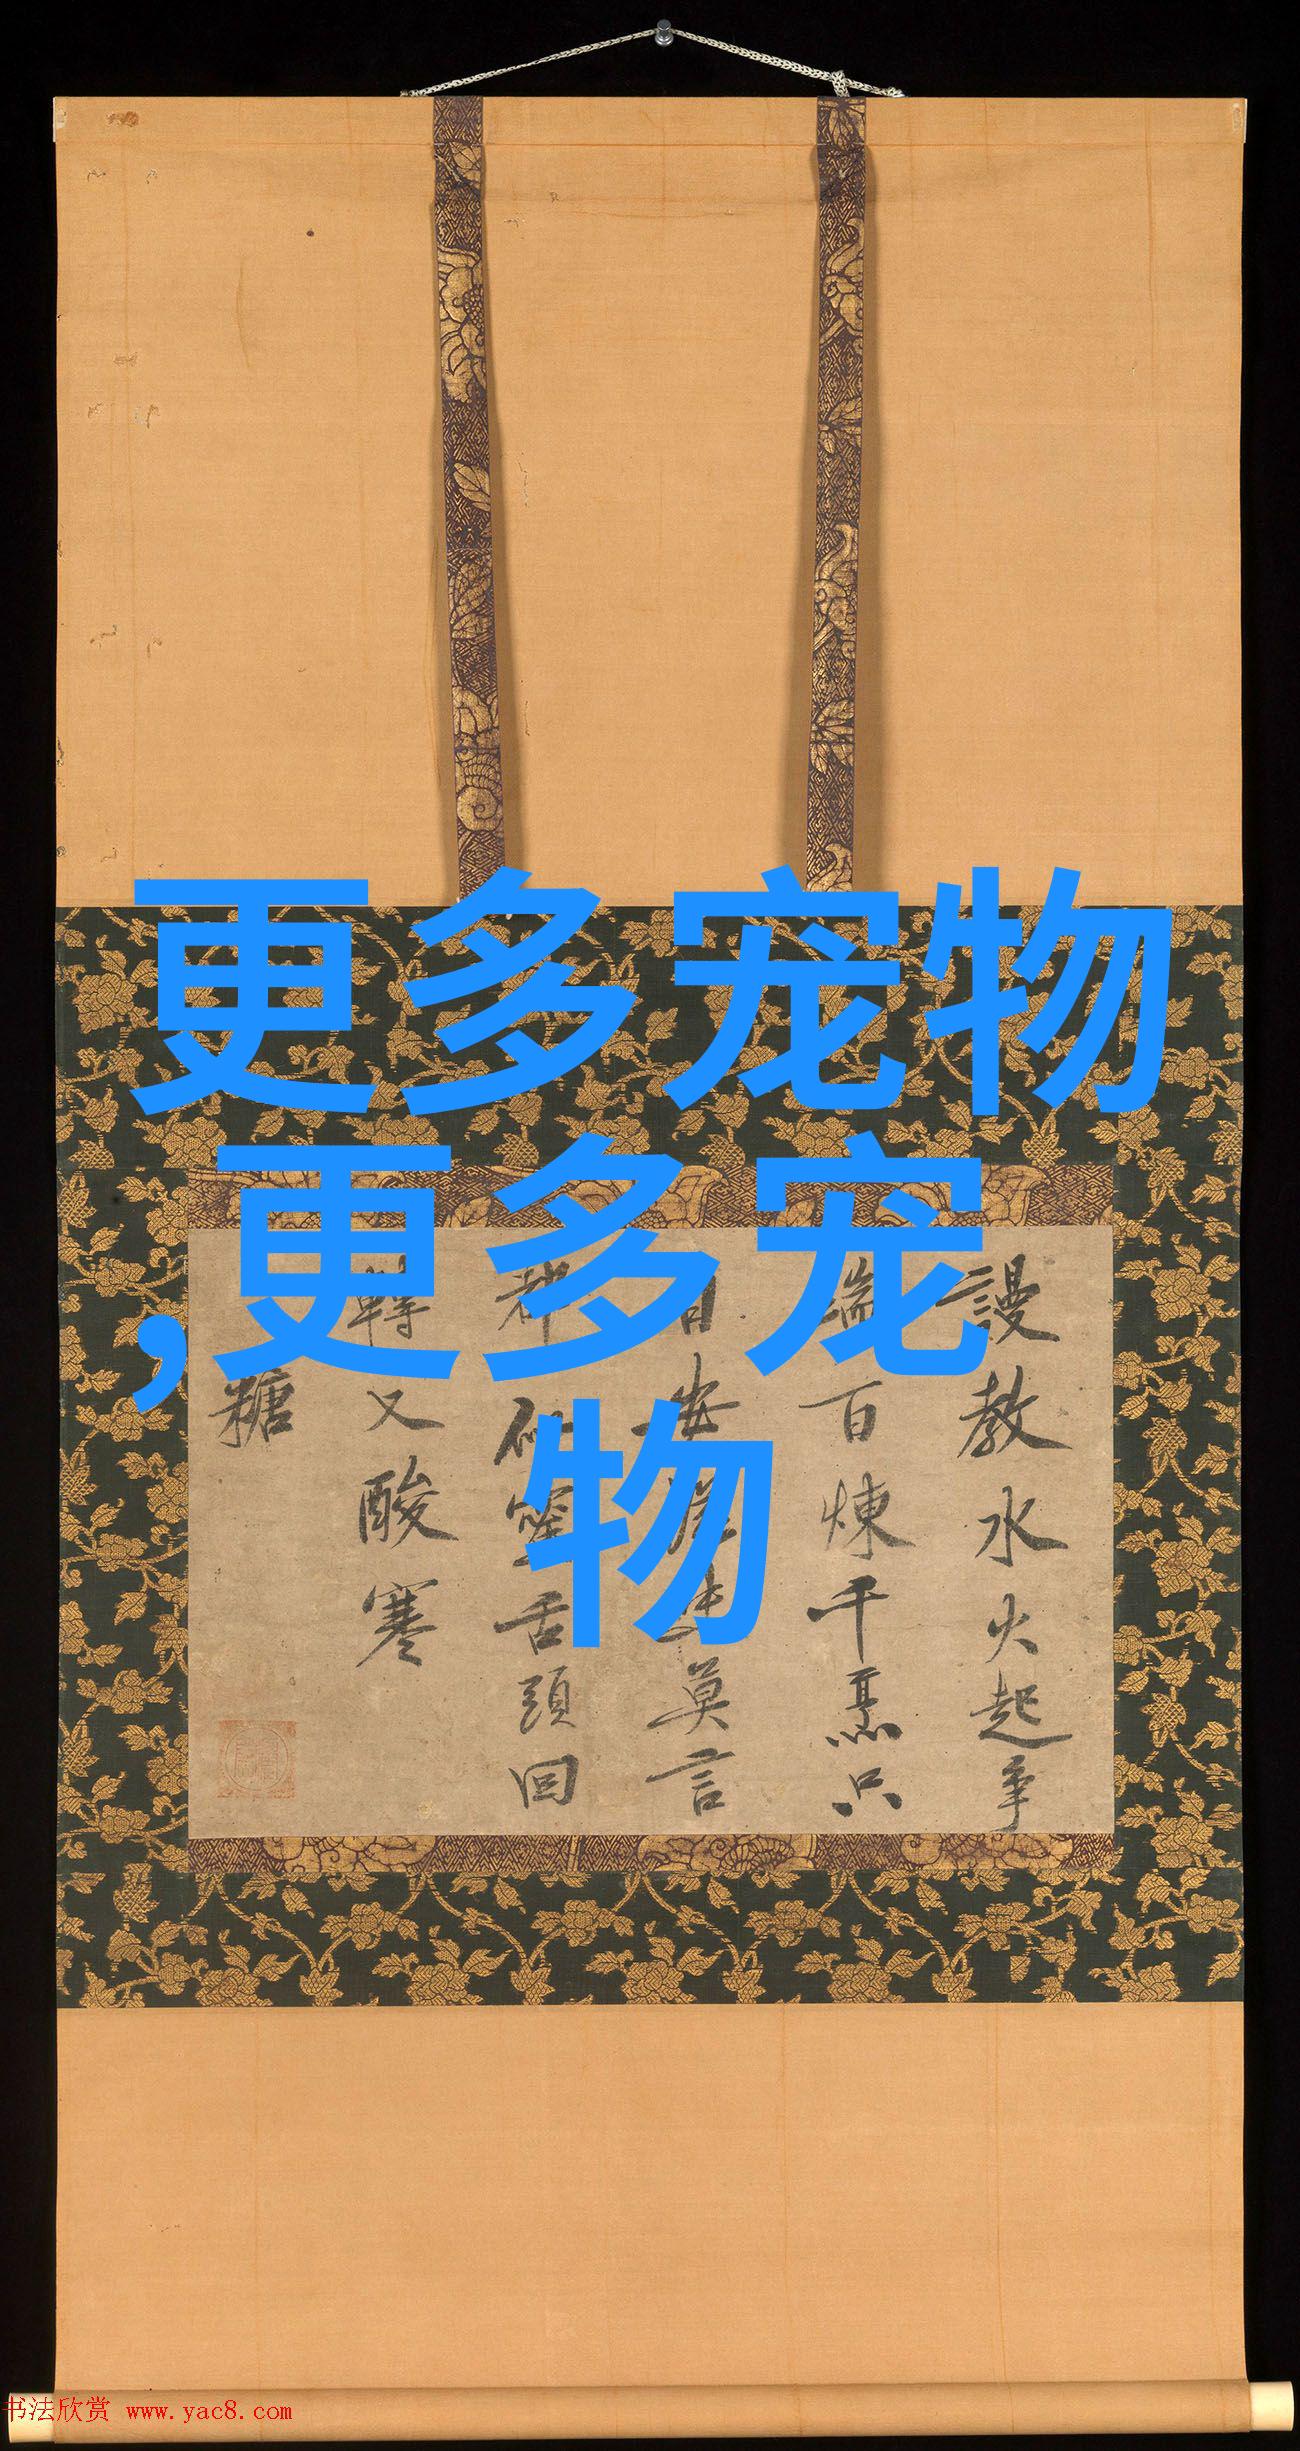 更多宠物
,更多宠
物
謾教水火起爭
端百煉千烹只
自安崖蜜莫言
都似蜜舌頭回
轉又酸寒
糖
书法欣赏 www.yac8.com